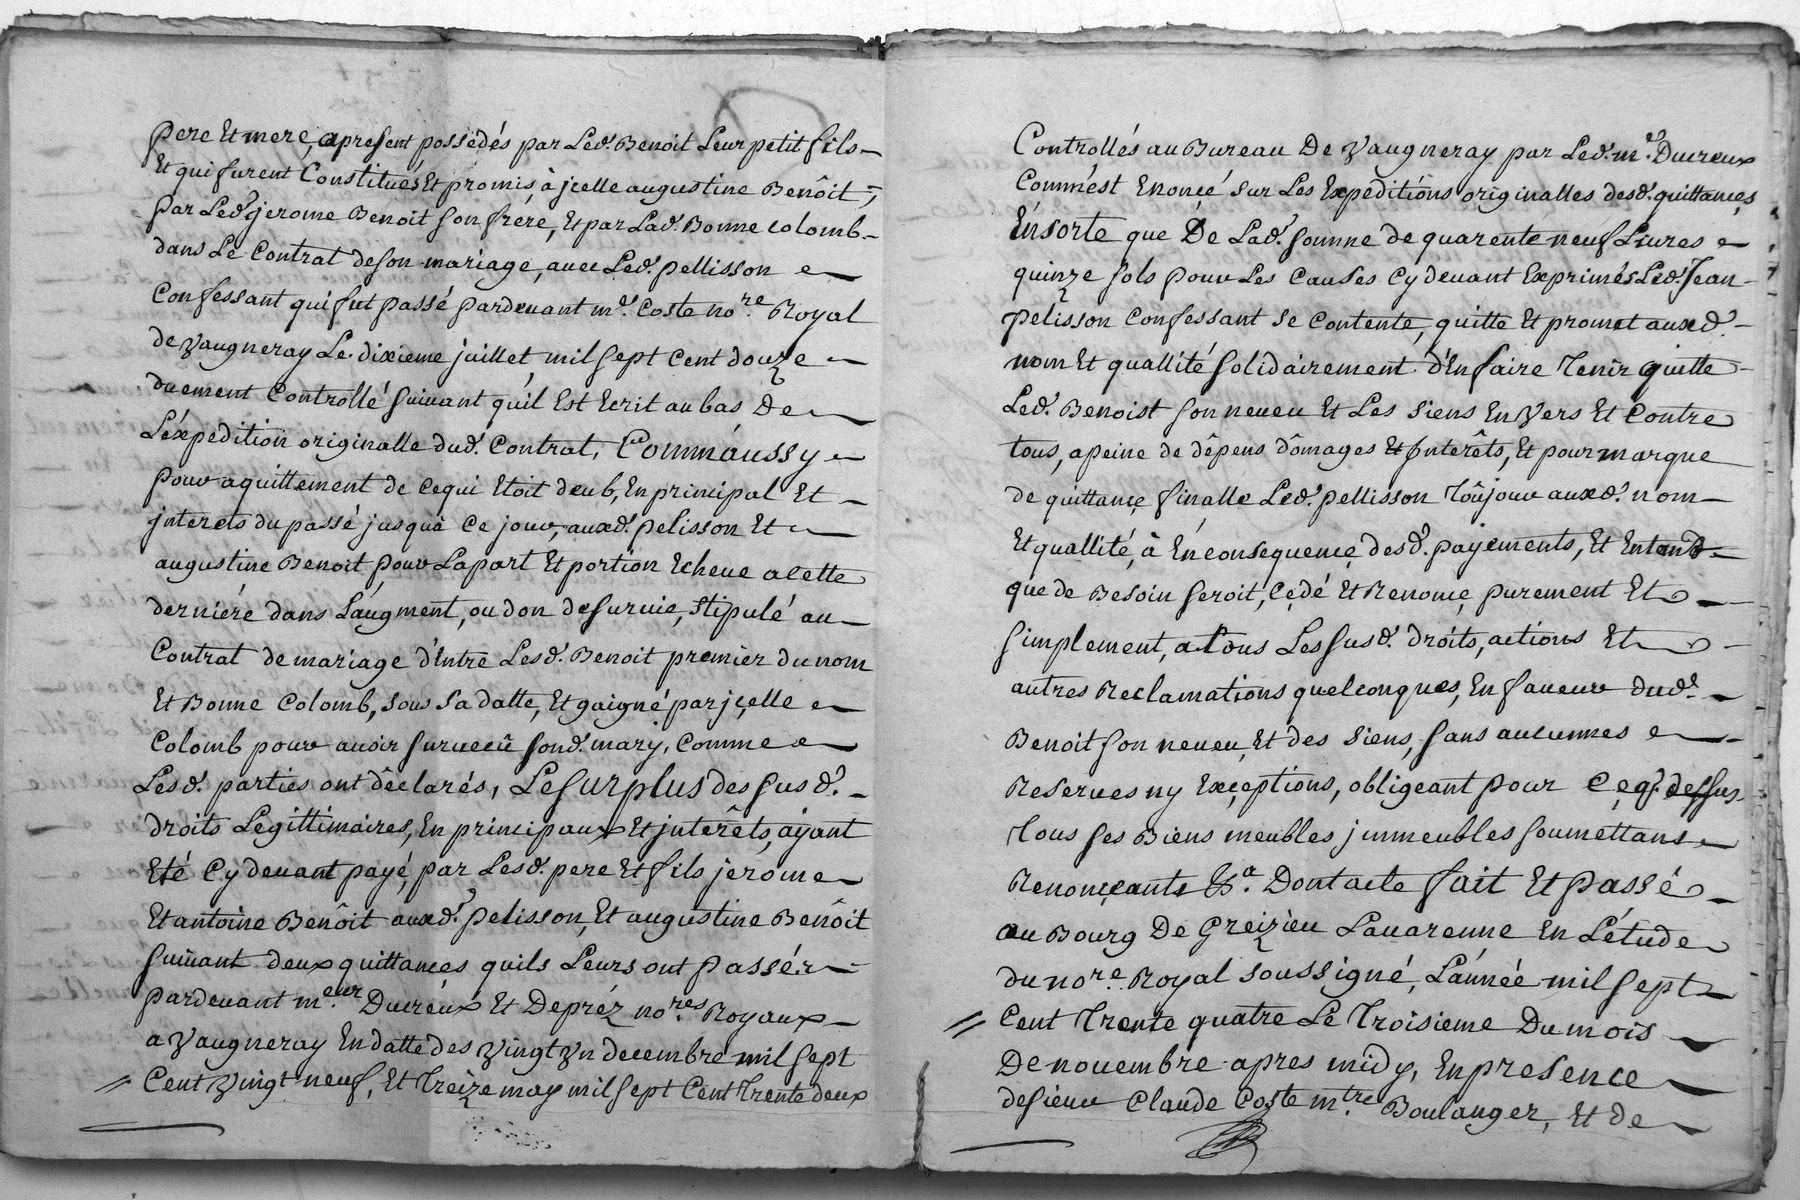 pere Et mere, apresent possédés par Led. Benoit Leur petit fils
Et qui furent Constitués Et promis à jcelle augustine Benôit,
par Led. jerome Benoit son frére, Et par Lad. Bonne colomb
dans Le Contrat de son mariage, avec Led. pellisson
Confessant qui fut passé pardevant me. Coste no.re Royal
de Vaugneray Le dixieme juillet mil sept Cent douze
duement Controllé suivant qu'il Est Ecrit au bas De
L'éxpedition originalle dud. Contrat, Comm'aussy
pour aquittement de cequi Etoit deub, En principal Et
jnterets du passé jusqu'a Ce jour, auxd. pelisson Et
augustine Benoit pour Lapart Et portion Echeue acette
derniére dans L'augment, ou don de survie, stipulé au
Contrat de mariage d'Entre Lesd. Benoit premier du nom
Et Bonne Colomb, sous sa datte, Et gaigné par jçelle
Colomb pour avoir surveçu sond. mary, Comme
Lesd. parties ont dêclarés, Le surplus des susd.
droits Legittimaires, En principaux Et jnterêts, ayant
Eté Cy devant payé, par Lesd. pere Et fils jerome
Et antoine Benôit auxd. pelisson, Et augustine Benôit
suivant deux quittances quils Leurs ont passér
pardevant me.eur Ducréux Et Depréz no.res Royaux
a Vaugneray En datte des Vingt Vn decembre mil sept
Cent Vingt neuf, Et Treize may mil sept Cent Trente deux
Controllés au Bureau De Vaugneray par Led. me. Ducreux
Comm'est Enoncé sur Les Expeditions originalles desd. quittances
Ensorte que De Lad. somme de quarente neuf Livres
quinze sols pour Les Causes Cy devant Exprimés Led. Jean
pélisson Confessant se Contente, quitte Et promet auxd.
nom Et quallité solidairement d'En faire Tenir quitte
Led. Benoist son neveu Et Les siens En Vers Et Contre
tous, apeine de dêpens dômages Et Jnterêts, Et pour marque
de quittançe finalle Led. pellisson Toûjour auxd. nom
Et quallité, à En consequençe desd. payements, Et Entant
que de Besoin seroit, Çedé Et Renonçe purement Et
simplement, a Tous Les susd. droits, actions Et
autres Reclamations quelconques, En faveur dud.
Benoit son neveu, Et des siens, sans aucunnes
Reserves ny Exçeptions, obligeant pour Ceq. dessus
Tous ses Biens meubles jmmeubles soumettans
Renonçants &a. Dont acte fait Et passé
au Bourg De Greizieu Lavarenne En L'étude
du no.re Royal soussigné, L'année mil sept
Cent Trente quatre Le Troisieme Du mois
De novembre apres midy, En presence
de sieur Claude Coste m.tre Boulanger, Et de